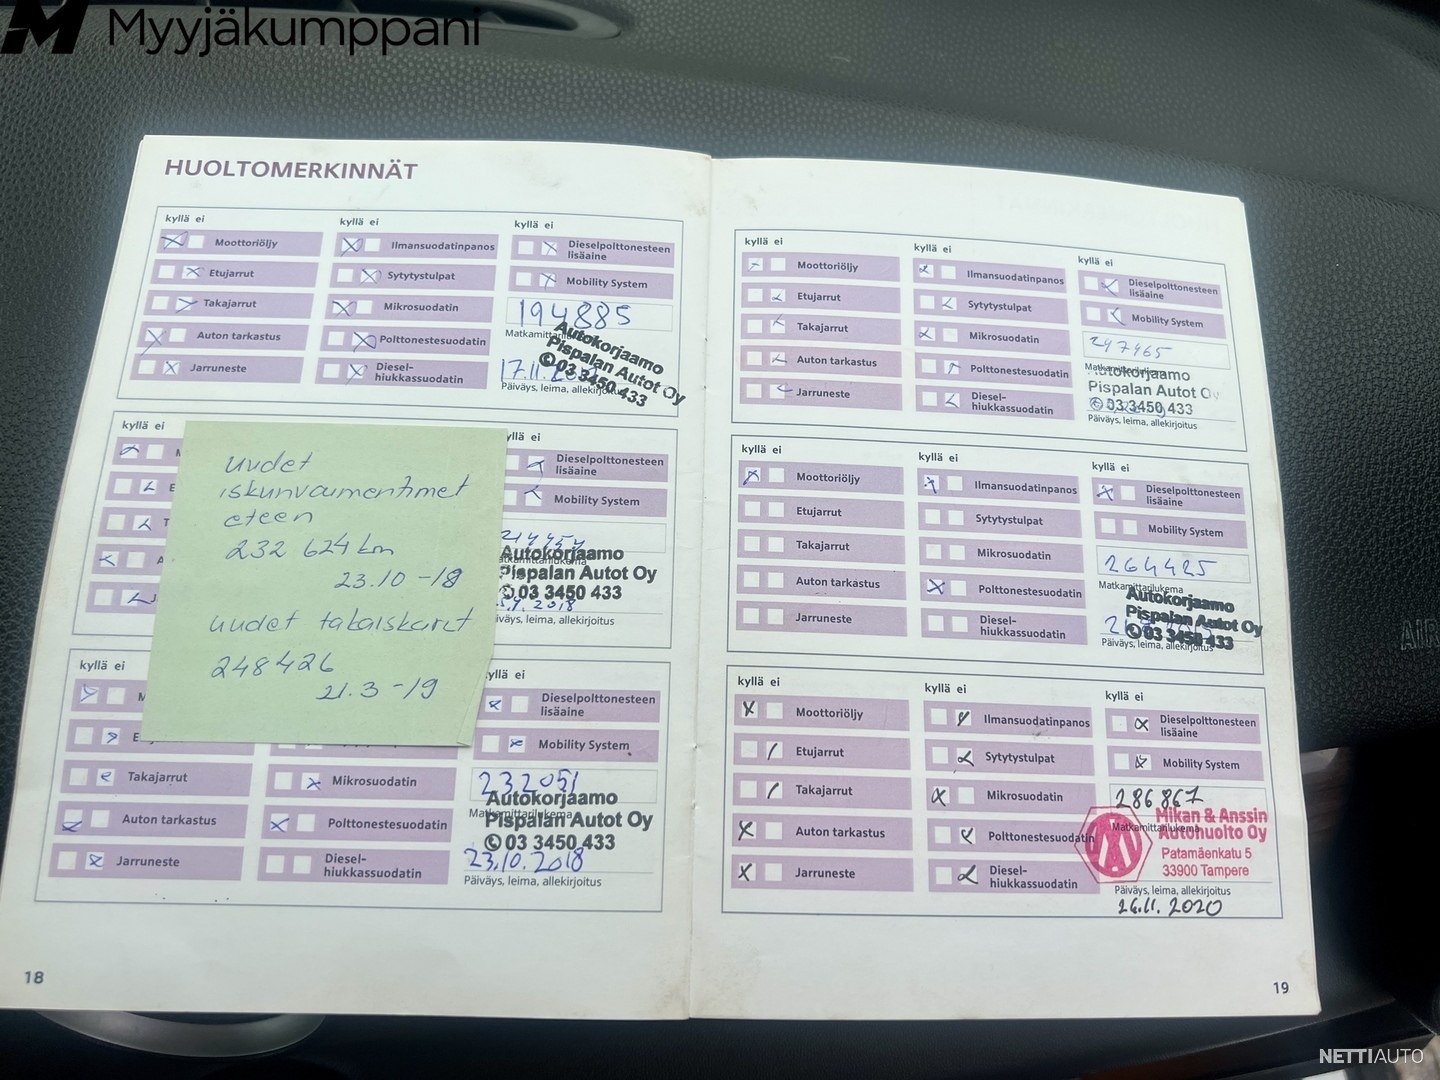 Myyjäkumppani
HUOLTOMERKINNÄT
kyllä ei
kyllä ei
kyllä ei
Moottoriöljy
Ilmansuodatinpanos
Dieselpolttonesteen
lisäaine
Etujarrut
Sytytystulpat
Mobility System
Takajarrut
Mikrosuodatin
194885
Matkamittari
Auton tarkastus
Polttonestesuodatin
Jarruneste
Diesel-
hiukkassuodatin
17.11.
Autokorjaamo
Pispalan Autot Oy
✆03 3450 433
Päiväys, leima, allekirjoitus
kyllä ei
yllä ei
M
Dieselpolttonesteen
lisäaine
E
Mobility System
T
A
J
Autokorjaamo
Pispalan Autot Oy
✆03 3450 433
2018
iväys, leima, allekirjoitus
uudet
iskunvaimentimet
eteen
232 624 km
23.10 -18
uudet takaiskarit
248426
21.3 -19
kyllä ei
yllä ei
M
Dieselpolttonesteen
lisäaine
E
Mobility System
Takajarrut
Mikrosuodatin
232051
Matkamittarilukema
Auton tarkastus
Polttonestesuodatin
Jarruneste
Diesel-
hiukkassuodatin
Autokorjaamo
Pispalan Autot Oy
✆03 3450 433
23.10.2018
Päiväys, leima, allekirjoitus
18
kyllä ei
kyllä ei
kyllä ei
Moottoriöljy
Ilmansuodatinpanos
Dieselpolttonesteen
lisäaine
Etujarrut
Sytytystulpat
Mobility System
Takajarrut
Mikrosuodatin
247465
Auton tarkastus
Polttonestesuodatin
Jarruneste
Diesel-
hiukkassuodatin
Autokorjaamo
Pispalan Autot Oy
✆03 3450 433
Päiväys, leima, allekirjoitus
kyllä ei
kyllä ei
kyllä ei
Moottoriöljy
Ilmansuodatinpanos
Dieselpolttonesteen
lisäaine
Etujarrut
Sytytystulpat
Mobility System
Takajarrut
Mikrosuodatin
264425
Matkamittarilukema
Auton tarkastus
Polttonestesuodatin
Jarruneste
Diesel-
hiukkassuodatin
Autokorjaamo
Pispalan Autot Oy
✆03 3450 433
Päiväys, leima, allekirjoitus
kyllä ei
kyllä ei
kyllä ei
Moottoriöljy
Ilmansuodatinpanos
Dieselpolttonesteen
lisäaine
Etujarrut
Sytytystulpat
Mobility System
Takajarrut
Mikrosuodatin
286867
Matkamittarilukema
Auton tarkastus
Polttonestesuodatin
Jarruneste
Diesel-
hiukkassuodatin
Mikan & Anssin
Autohuolto Oy
Patamäenkatu 5
33900 Tampere
Päiväys, leima, allekirjoitus
26.11. 2020
19
AIR
NETTIAUTO